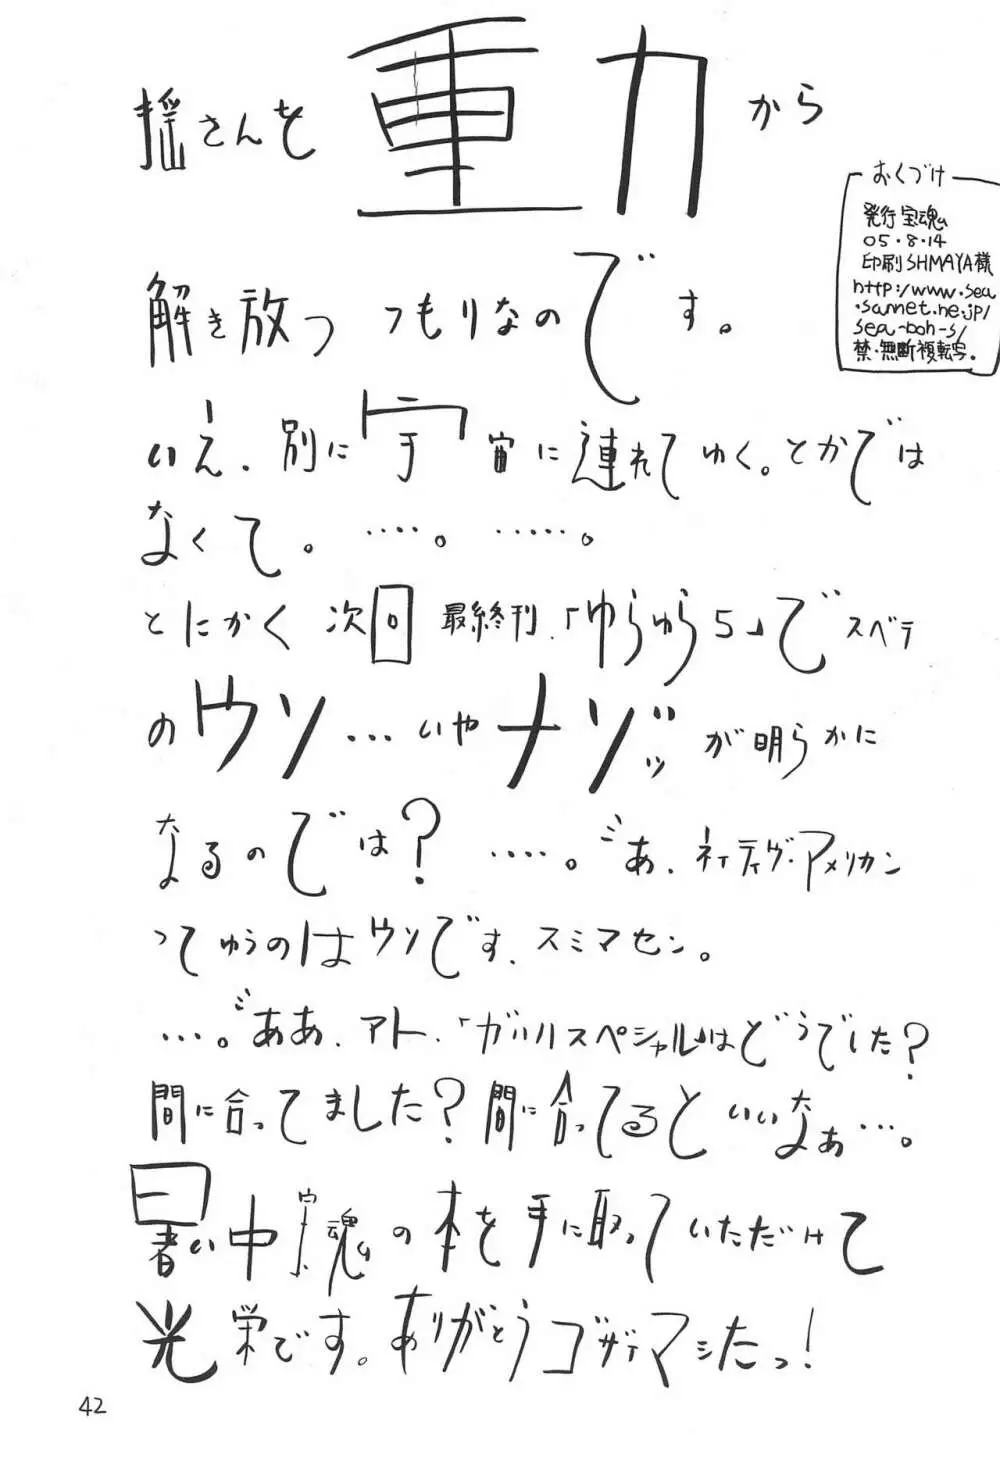 揺さんを重力から
解き放つ つもりなのです。
いえ、別に宇宙に連れてゆく。とかでは
なくて。‥‥。‥‥‥。
とにかく 次回 最終刊、「ゆらゆら5」で スベテ
のウソ…いやナゾッッが明らかに
なるのでは?‥‥。ミあ、ネイティヴ・アメリカン
ってゆうのはウソです、スミマセン。
…。ミああ、アト、「ガハハスペシャル」はどうでした?
間に合ってました?間に合ってるといいなぁ…。
暑い中宝魂の本を手に取っていただけて
光栄です。ありがとうゴザイマシたっ!
おくづけ
発行 宝魂
05・8・14
印刷 SHIMAYA様
http://www.sea
.sannet.ne.jp/
sea-boh-s/
禁・無断複転写。
42